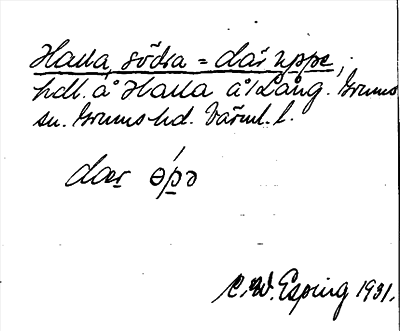 Halla, södra = där uppe,
hdl. å Halla å Lång. Grums
sn. Grums hd. Värml. l.
dær ɵ́pə
C. W. Esping 1931.